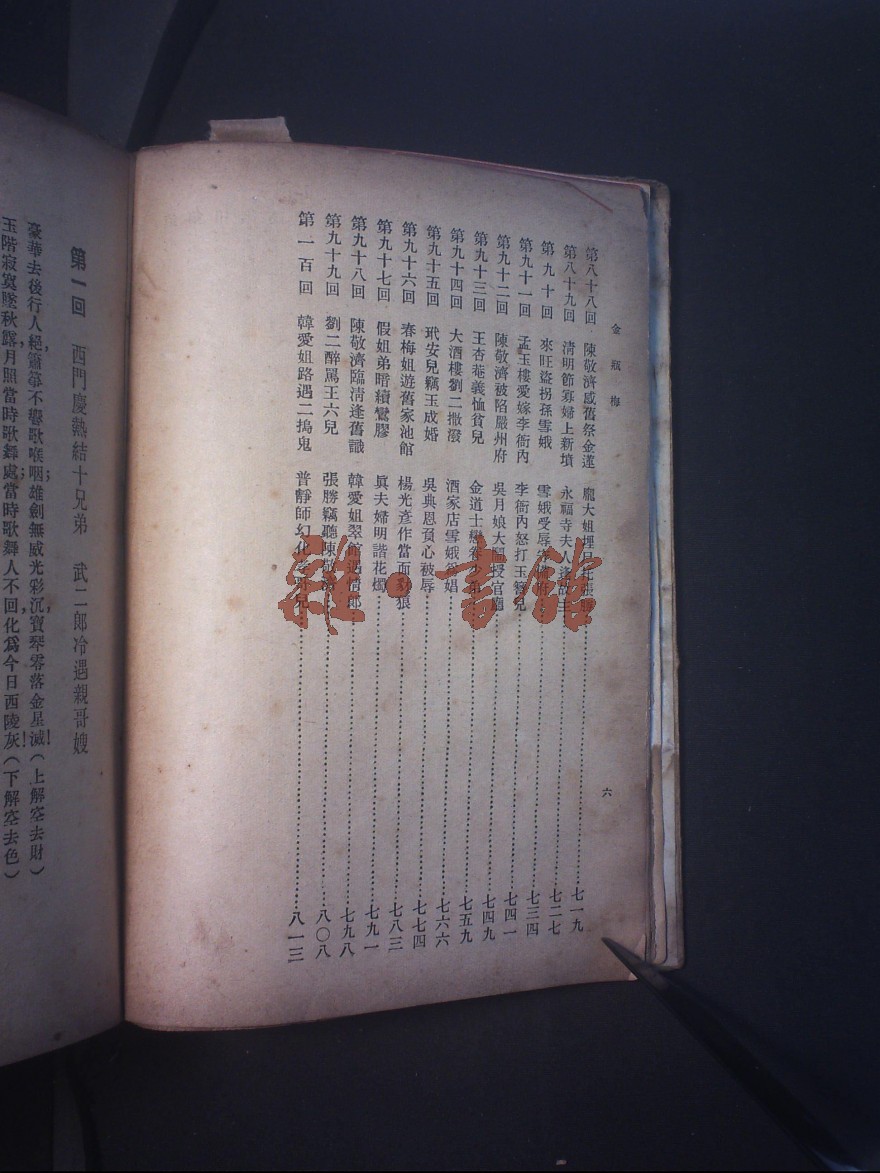 金瓶梅
第八十八回 陳敬濟感舊祭金蓮 龐大姐埋尸託張勝 七一九
第八十九回 淸明節寡婦上新墳 永福寺夫人逢故主 七二七
第九十回 來旺盜拐孫雪娥 雪娥受辱 七三四
第九十一回 孟玉樓愛嫁李衙內 李衙內怒打玉簪兒 七四一
第九十二回 陳敬濟被陷嚴州府 吳月娘大鬧授官廳 七四九
第九十三回 王杏菴義恤貧兒 金道士孌 七五九
第九十四回 大酒樓劉二撒潑 酒家店雪娥爲娼 七六六
第九十五回 玳安兒竊玉成婚 吳典恩負心被辱 七七四
第九十六回 春梅姐遊舊家池館 楊光彥作當面豺狼 七八三
第九十七回 假姐弟暗續鸞膠 眞夫婦明諧花燭 七九一
第九十八回 陳敬濟臨淸逢舊識 韓愛姐翠館遇情郎 七九八
第九十九回 劉二醉駡王六兒 張勝竊聽陳敬濟 八〇八
第一百回 韓愛姐路遇二搗鬼 普靜師幻化孝哥兒 八一三
六
第一回 西門慶熱結十兄弟 武二郎冷遇親哥嫂
豪華去後行人絕,簫箏不響歌喉咽;雄劍無威光彩沉,寶琴零落金星滅!(上解空去財)
玉階寂寞墜秋露,月照當時歌舞處;當時歌舞人不回,化爲今日西陵灰!(下解空去色)
雜·書館